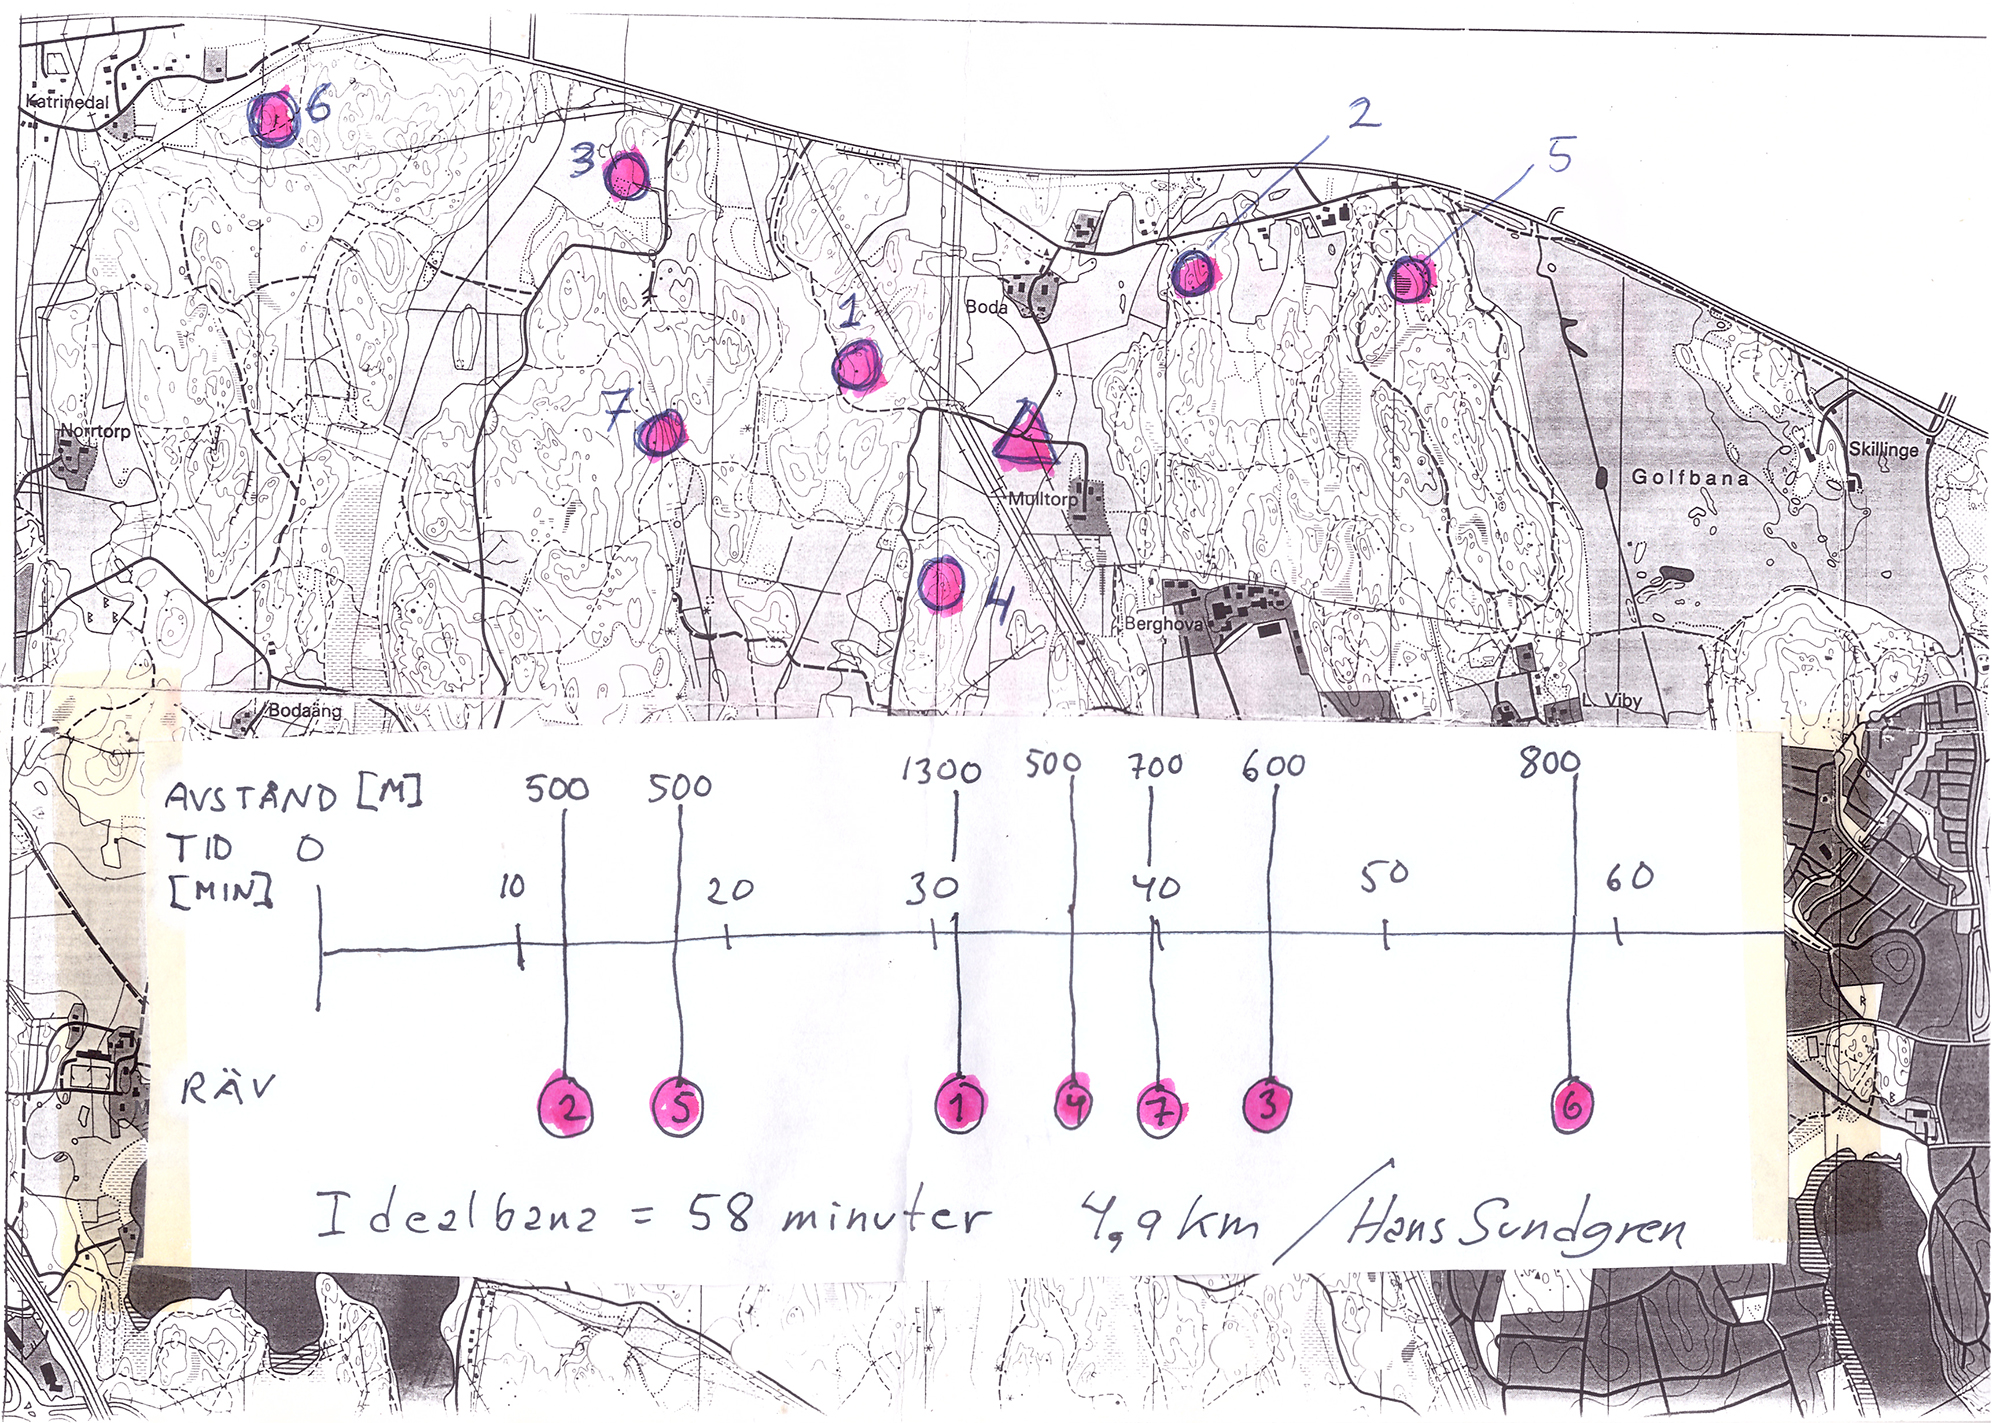 6
Katrinedal
3
2
5
Boda
1
7
Norrtorp
Skillinge
Golfbana
Multorp
4
Berghova
L. Viby
Bodaäng
AVSTÅND [M] 500 500 1300 500 700 600 800
TID 0
[MIN] 10 20 30 40 50 60
RÄV 2 5 1 4 7 3 6
Idealbana = 58 minuter 4,9 km / Hans Sundgren
B
B
B
R
B